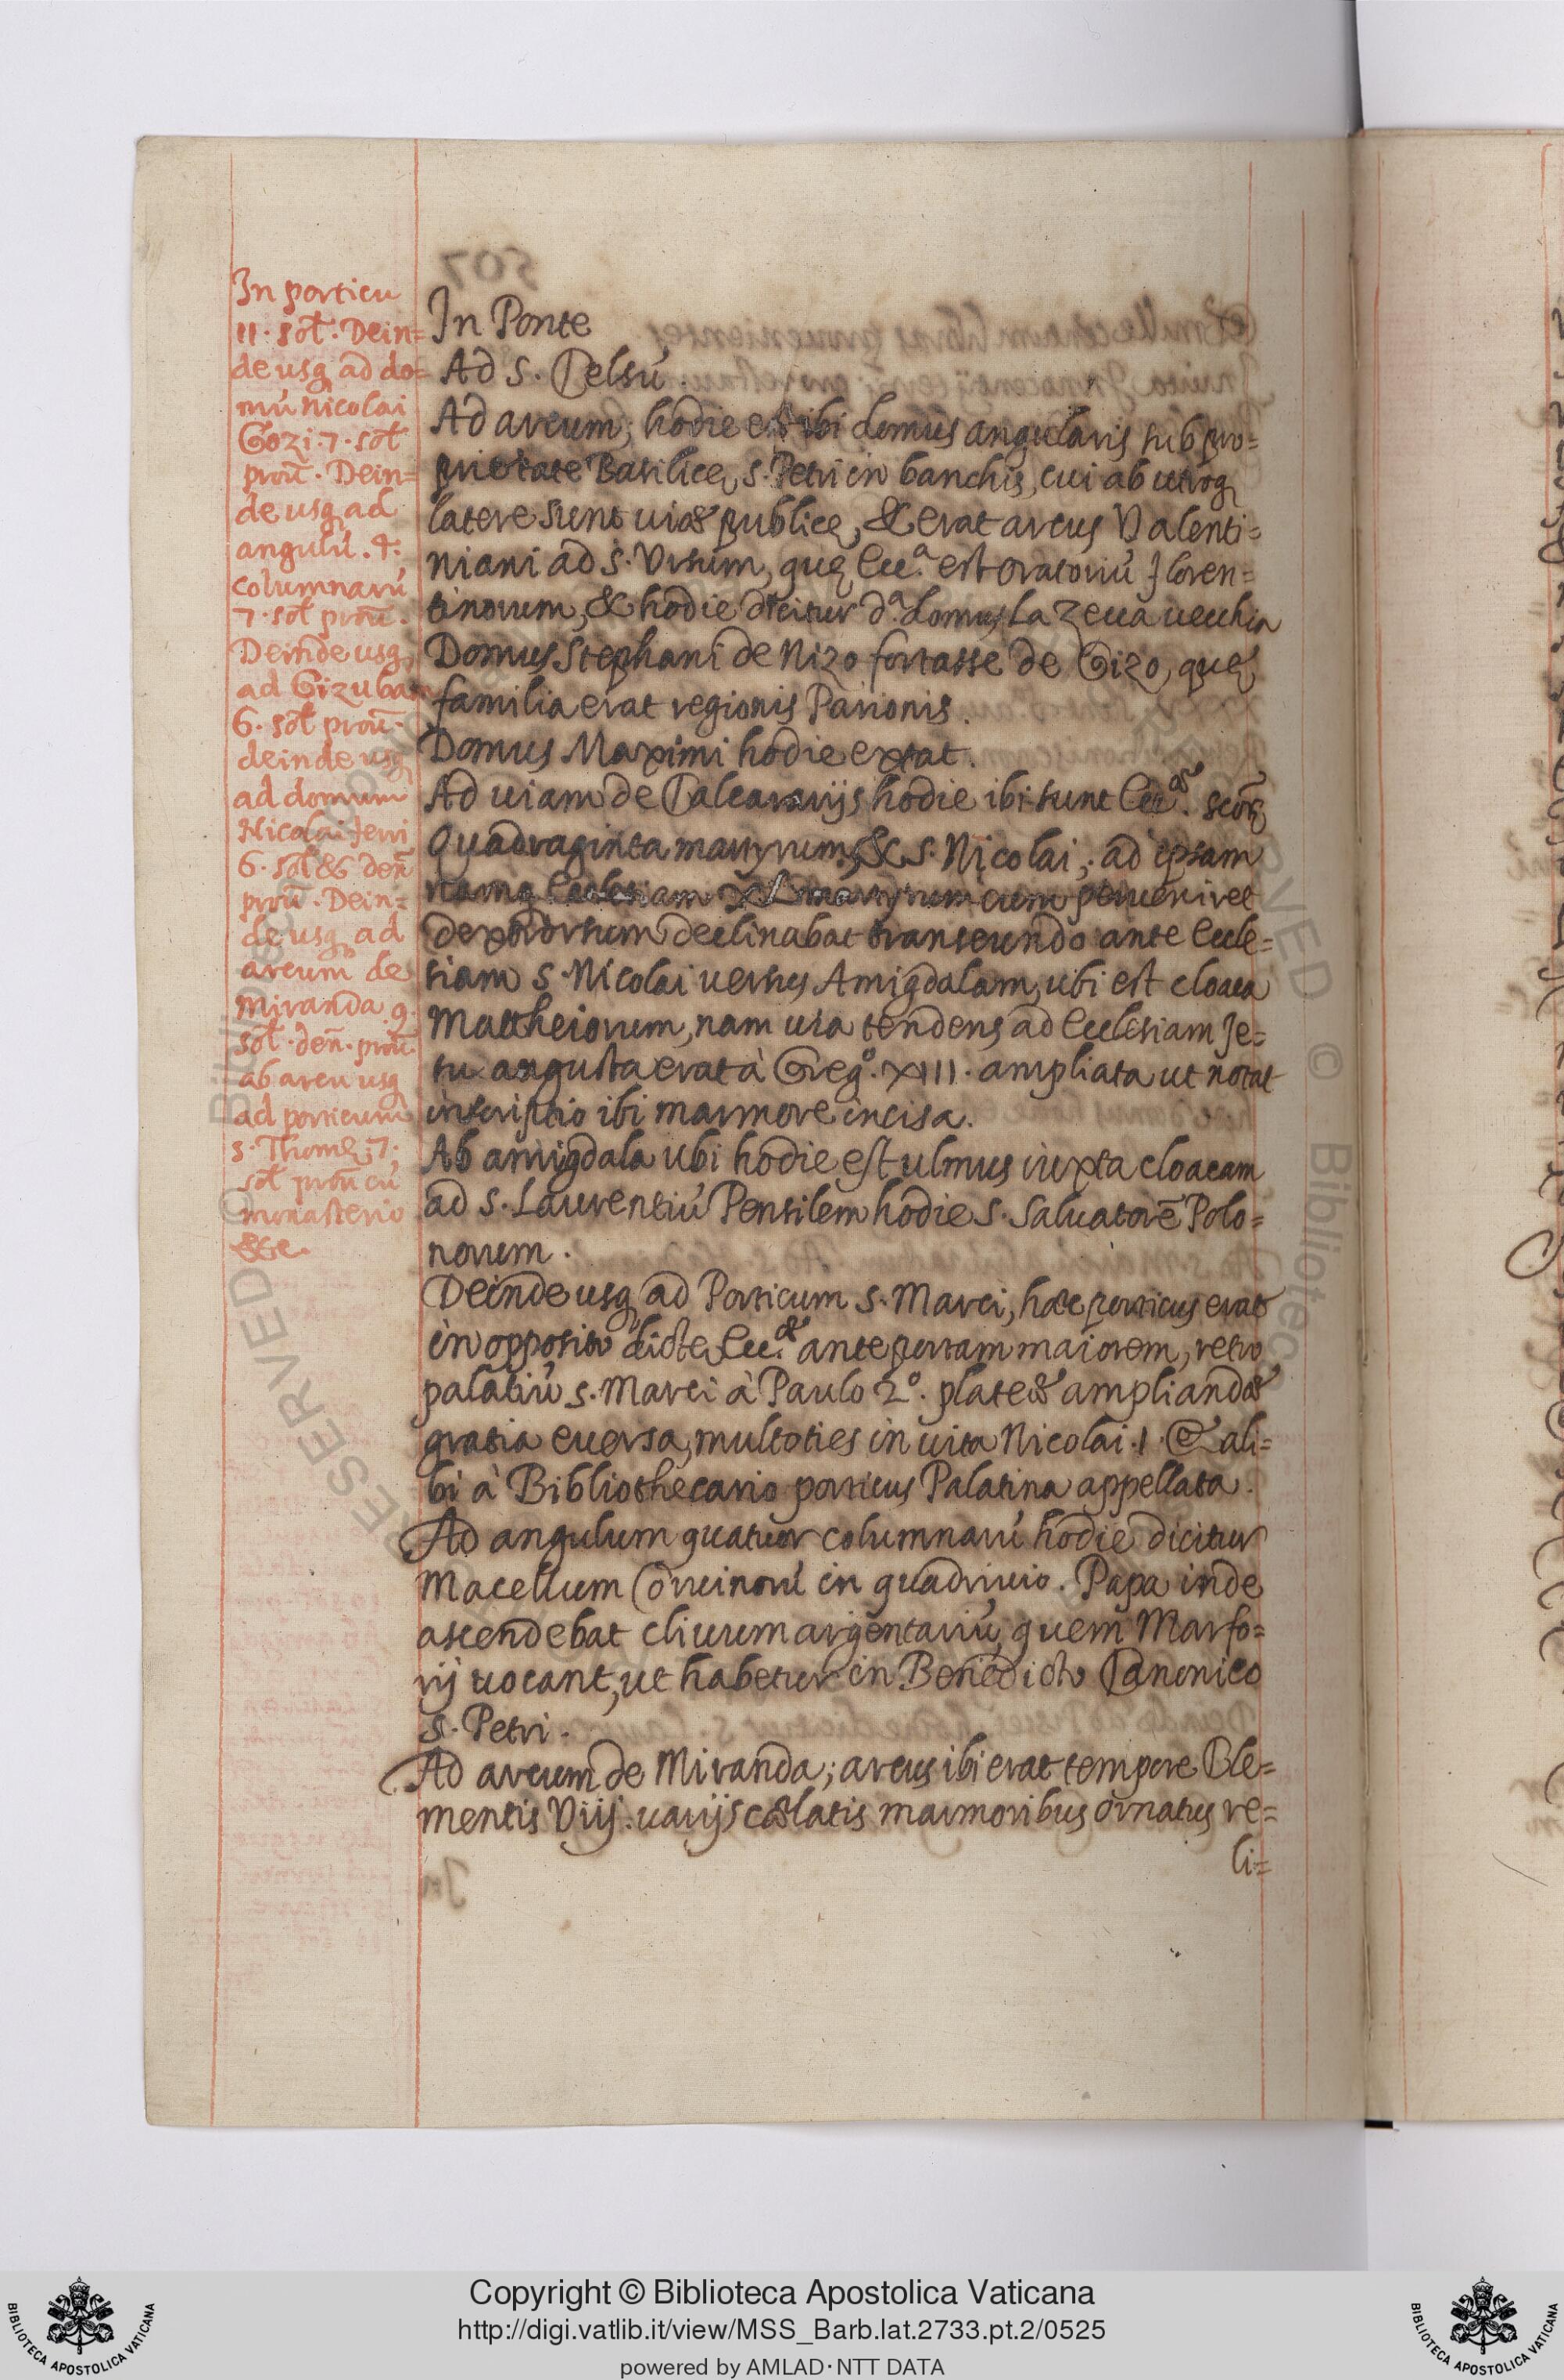 In porticu
11. sot. Dein=
de usq ad do=
mú Nicolai
Gozi. 7. sot
prou. Dein=
de usq ad
angulú. 4.
columnarú
7. sot prou.
Deinde usq
ad Gizubam
6. sot prou.
deinde usq
ad domum
Nicolai
6. sot & den
prou. Dein=
de usq ad
arcum de
Miranda 9.
sot. den. prou.
ab arcu usq
ad porticum
s. Thomę 7.
sot prou cú
monasterio
&c.
In Ponte
Ad S. Celsú.
Ad arcum; hodie est ibi domus angularis sub pro=
prietate Basilicę S. Petri in banchis, cui ab utroq
latere sunt uiæ publicę, & erat arcus Valenti=
niani ad S. Vrsum, quę Ecc.ª est oratoriú Floren=
tinorum, & hodie dicitur d.ª domus La Zecca uecchia
Domus Stephani de Nizo fortasse de Gizo, quę
familia erat regionis Parionis.
Domus Maximi hodie extat.
Ad uiam de Calcararijs hodie ibi sunt Ecc.æ scorʒ
Quadraginta martyrum, & S. Nicolai; ad ipsam
namq Ecclesiam XL martyrum cum peruenisset
dextrorsum declinabat transeundo ante Eccle=
siam S. Nicolai uersus Amigdalam, ubi est cloaca
Mattheiorum, nam uia tendens ad Ecclesiam Je=
su angusta erat à Greg.º XIII. ampliata ut notat
inscriptio ibi marmore incisa.
Ab amigdala ubi hodie est ulmus iuxta cloacam
ad S. Laurentiú Pensilem hodie S. Saluatorē Polo=
norum.
Deinde usq ad Porticum S. Marci, hæc porticus erat
in opposito dictę Ecc.æ ante portam maiorem, retro
palatiú S. Marci à Paulo 2º. plateæ ampliandæ
gratia euersa, multoties in uita Nicolai. I. & ali=
bi à Bibliothecario porticus Palatina appellata.
Ad angulum quatuor columnarú hodie dicitur
Macellum Coruinorú in quadriuio. Papa inde
ascendebat cliuum argentariú, quem Marfo=
rij uocant, ut habetur in Benedicto Canonico
S. Petri.
Ad arcum de Miranda; arcus ibi erat tempore Cle=
mentis Viij. uarijs cælatis marmoribus ornatus re=
li=
Copyright © Biblioteca Apostolica Vaticana
http://digi.vatlib.it/view/MSS_Barb.lat.2733.pt.2/0525
powered by AMLAD·NTT DATA
BIBLIOTECA APOSTOLICA VATICANA
BIBLIOTECA APOSTOLICA VATICANA